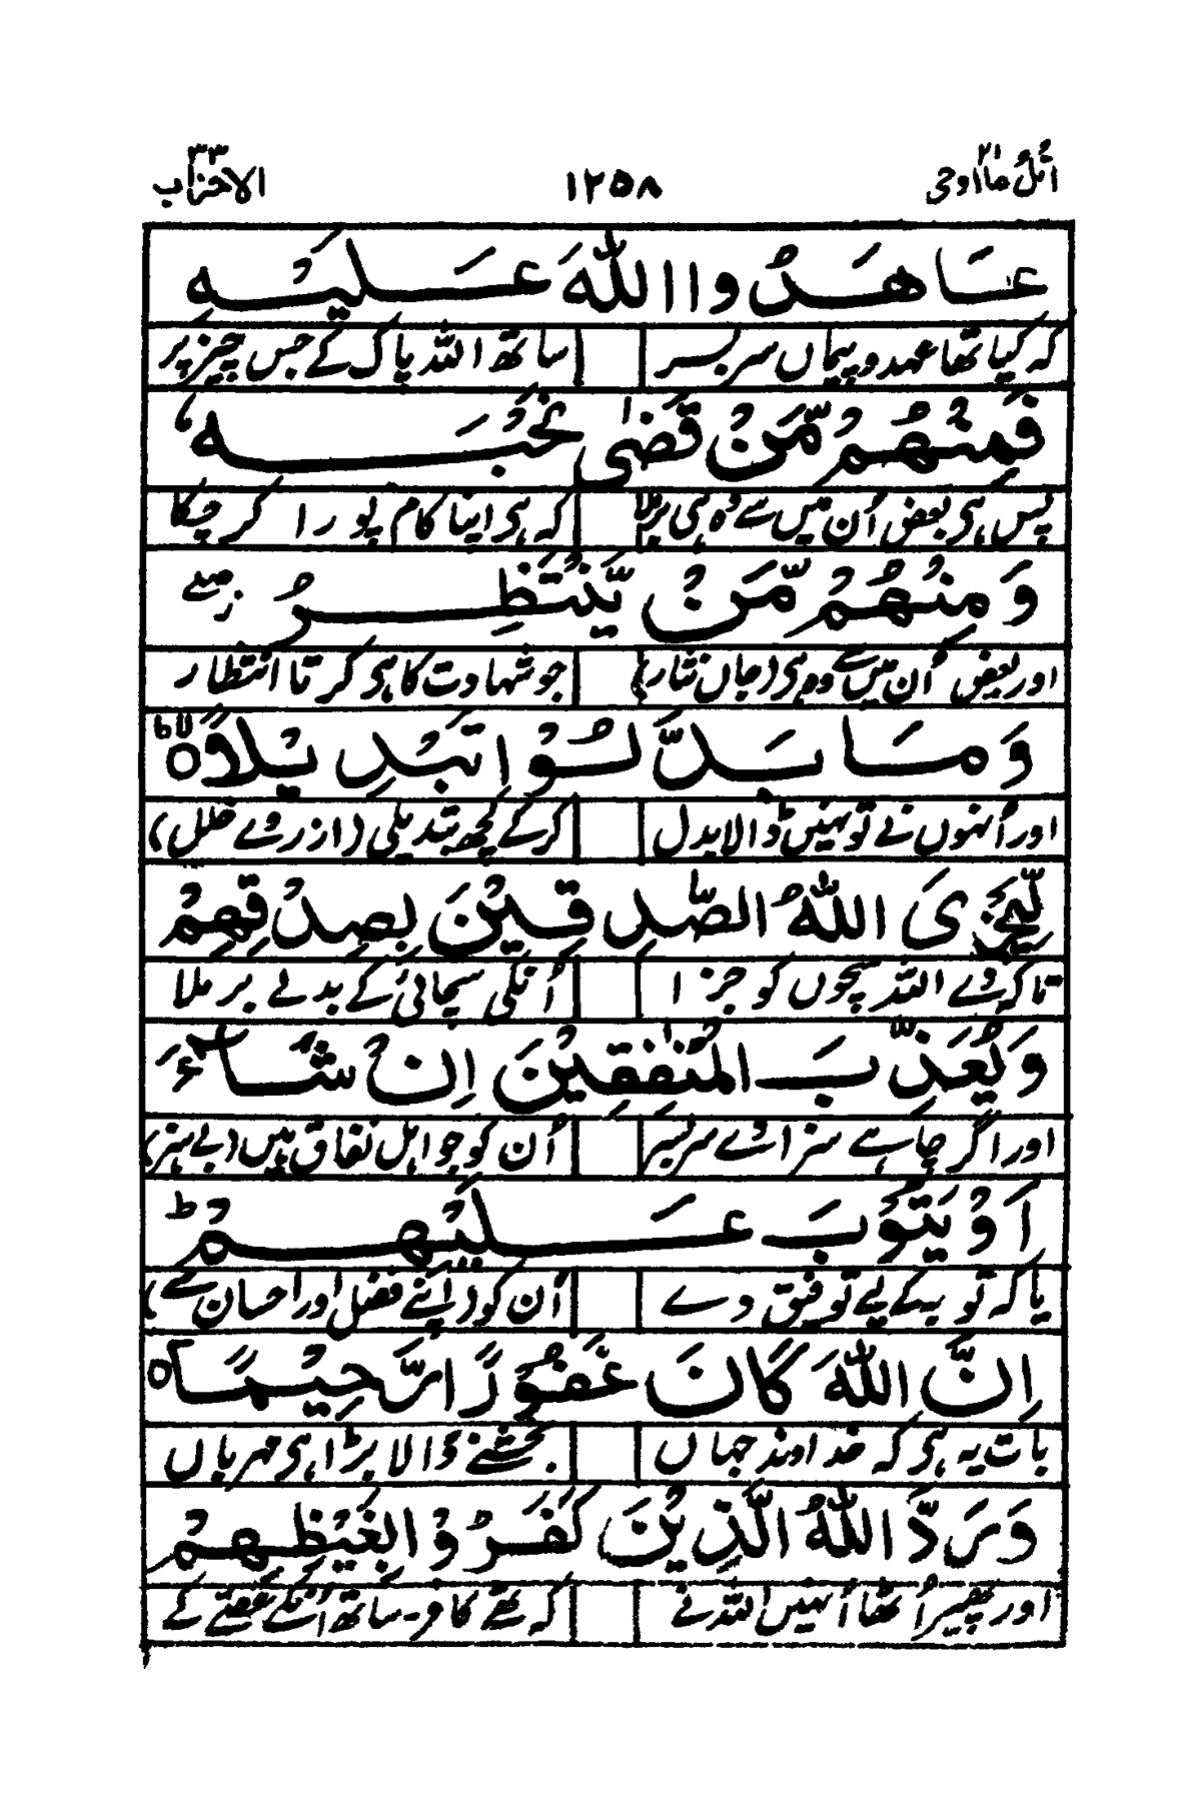 اتل مآ اوحی ۲۱ ۱۲۵۸ الاحزاب ۳۳
عَاهَدُوا اللّٰهَ عَلَيْهِ
کہ کیا تھا عہد و پیماں سربسر ساتھ اللہ پاک کے جس چیز پر
فَمِنْهُمْ مَّنْ قَضٰى نَحْبَهٗ
پس ہی بعض اُن میں سے وُہ ہی برملا کہ ہی اپنا کام پورا کر چکا
وَمِنْهُمْ مَّنْ يَّنْتَظِرُ ۖز
اور بعض اُن میں سے وہ ہی (جاں نثار) جو شہادت کا ہی کرتا انتظار
وَمَا بَدَّلُوْا تَبْدِيْلًا ۙ
اور اُنہوں نے تو نہیں ڈالا بدل کر کے کچھ تبدیلی (از روے خلل)
لِّيَجْزِىَ اللّٰهُ الصّٰدِقِيْنَ بِصِدْقِهِمْ
تا کہ دے اللہ سچوں کو جزا اُنکی سچائی کے بدلے برملا
وَيُعَذِّبَ الْمُنٰفِقِيْنَ اِنْ شَآءَ
اور اگر چاہے سزا دے سربسر اُن کو جو اہل نفاق ہیں (بے ہنر)
اَوْ يَتُوْبَ عَلَيْهِمْ ؕ
یا کہ توبہ کے لیے توفیق دے اُن کو (اپنے فضل اور احسان سے)
اِنَّ اللّٰهَ كَانَ غَفُوْرًا رَّحِيْمًا ۚ
بات یہ ہی کہ خداوند جہاں بخشنے والا بڑا ہی مہرباں
وَرَدَّ اللّٰهُ الَّذِيْنَ كَفَرُوْا بِغَيْظِهِمْ
اور پھیر اُٹھا اُنہیں اللہ نے کہ تھے کافر ۔ ساتھ اُنکے غصّے کے